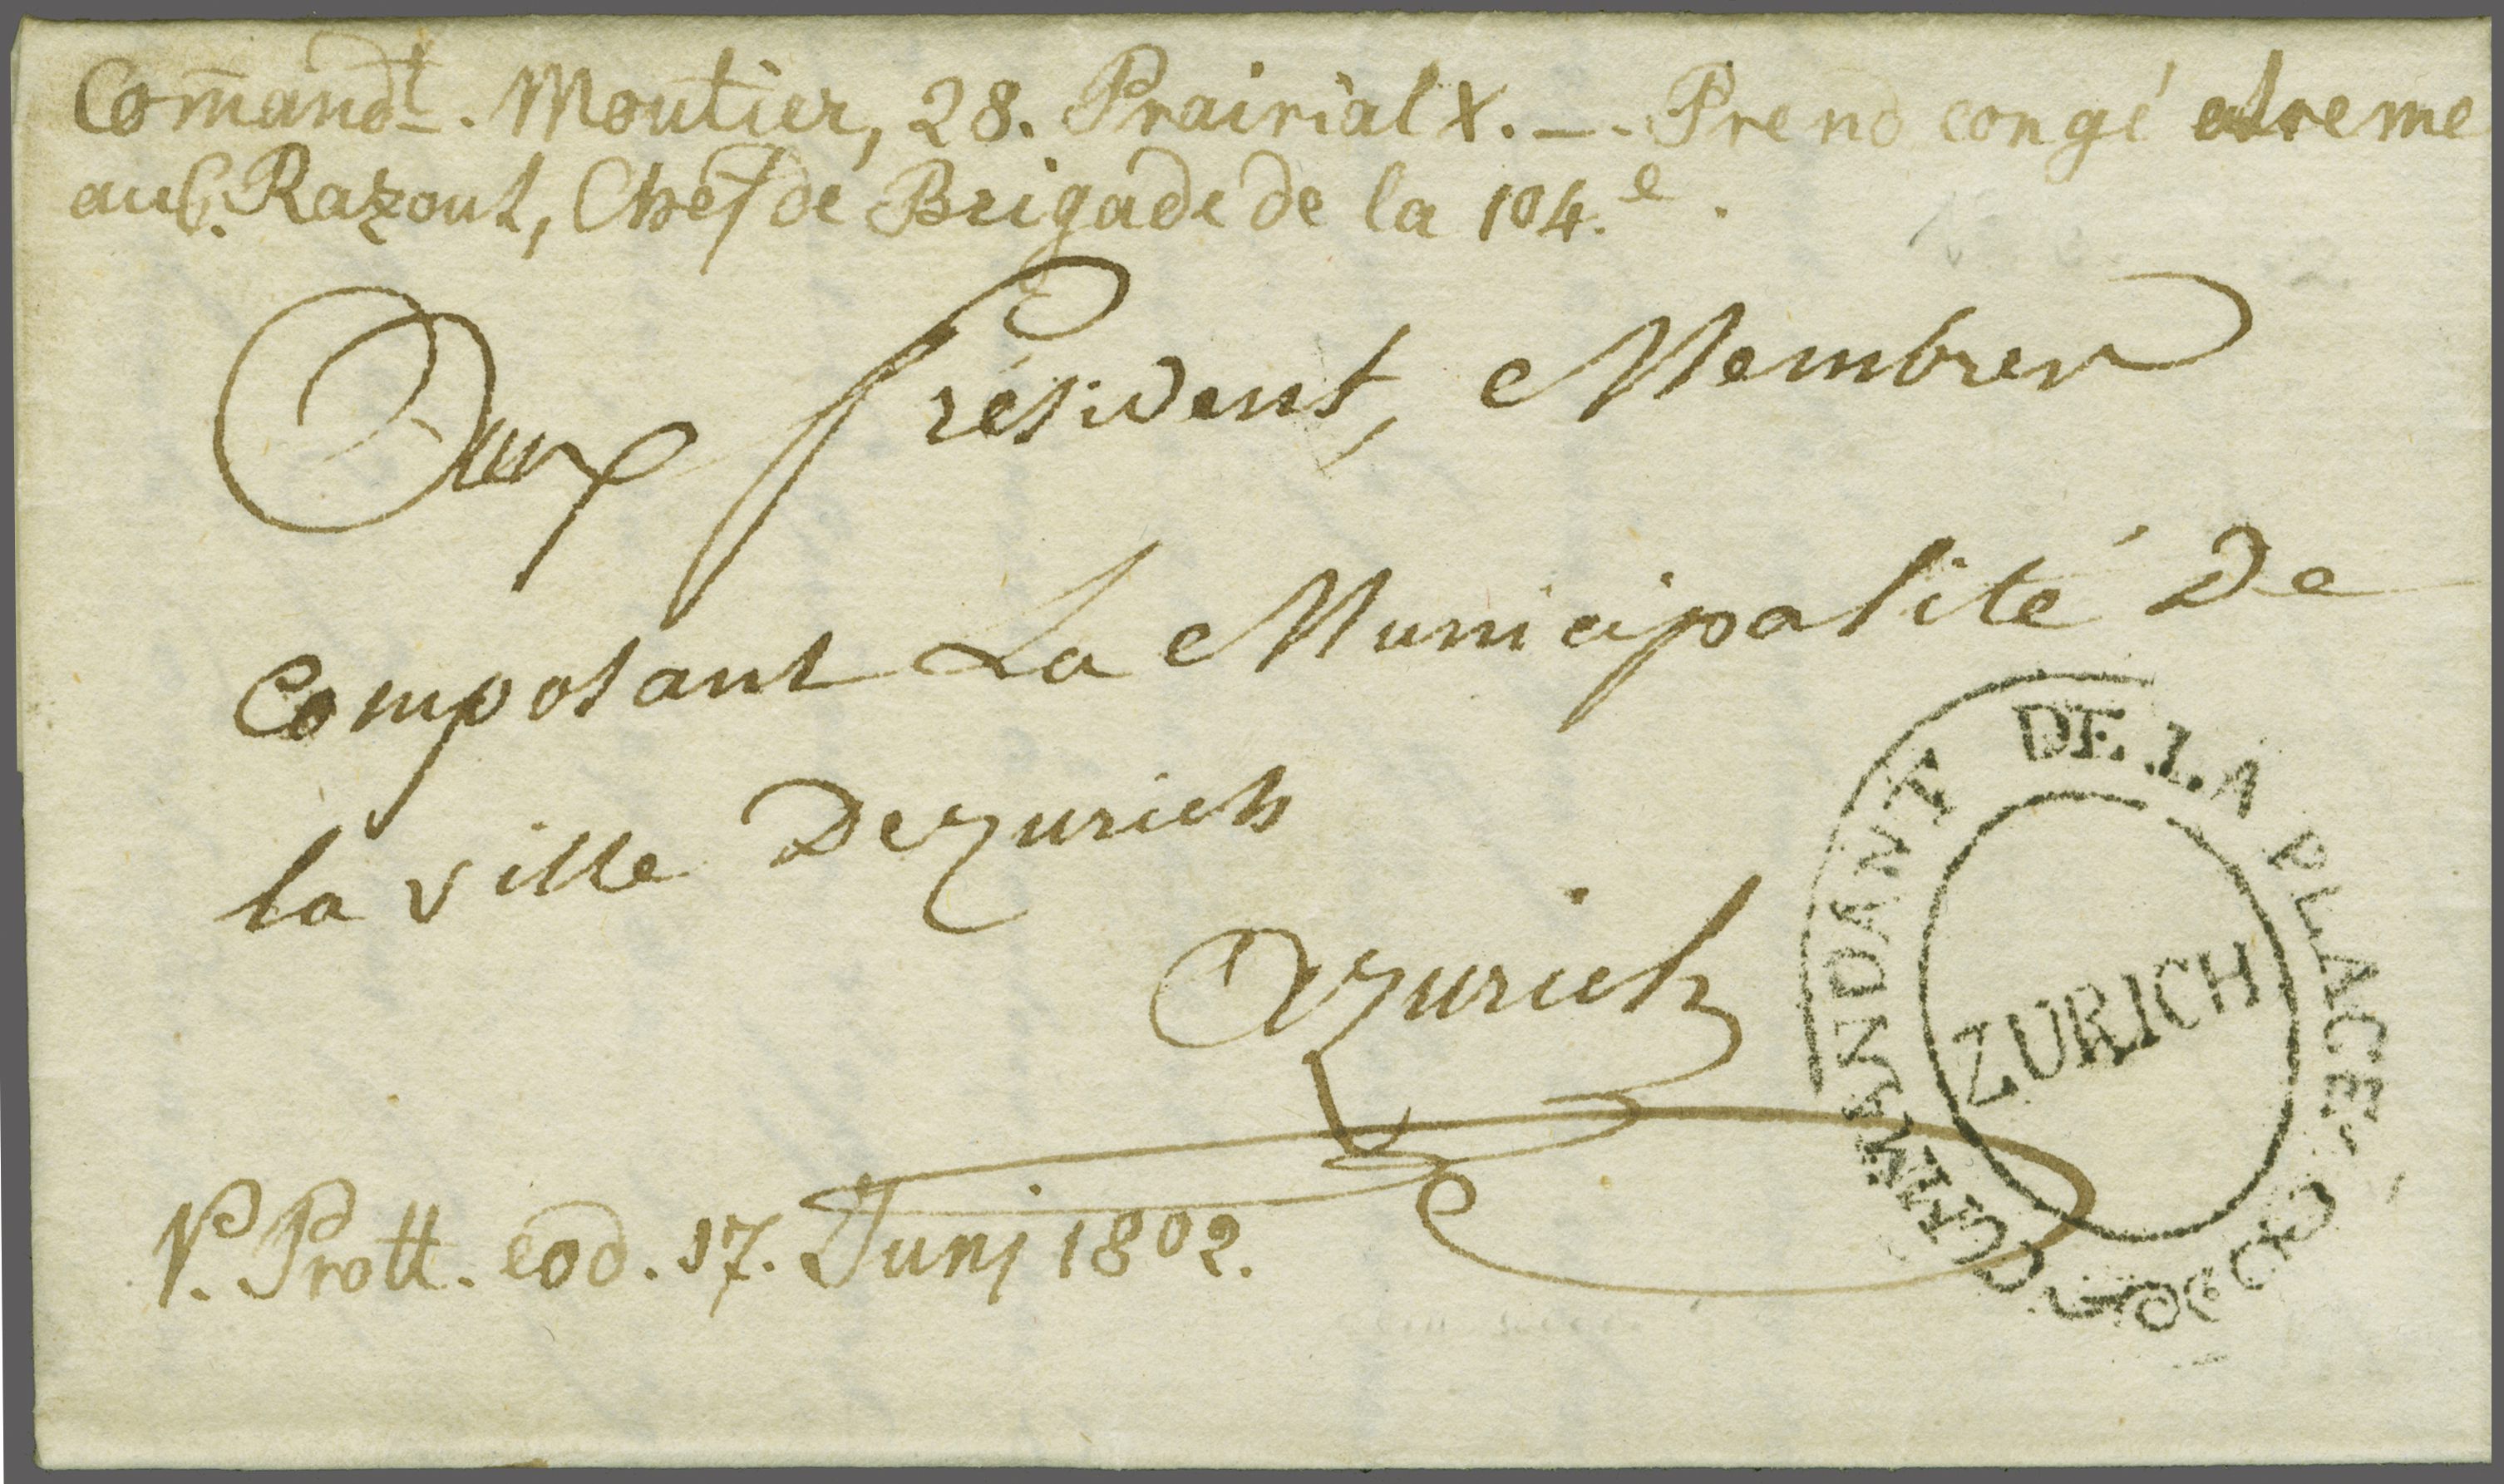 Com̄andt. Moutier, 28. Prairial X. — . Prend congé et reme
au C. Razout, Chef de Brigade de la 104.e.
Aux Président, Membres
Composant La Municipalité De
la ville De Zurich
A Zurich
V. Prott. eod. 17. Junj 1802.
COMMANDANT DE LA PLACE
ZURICH